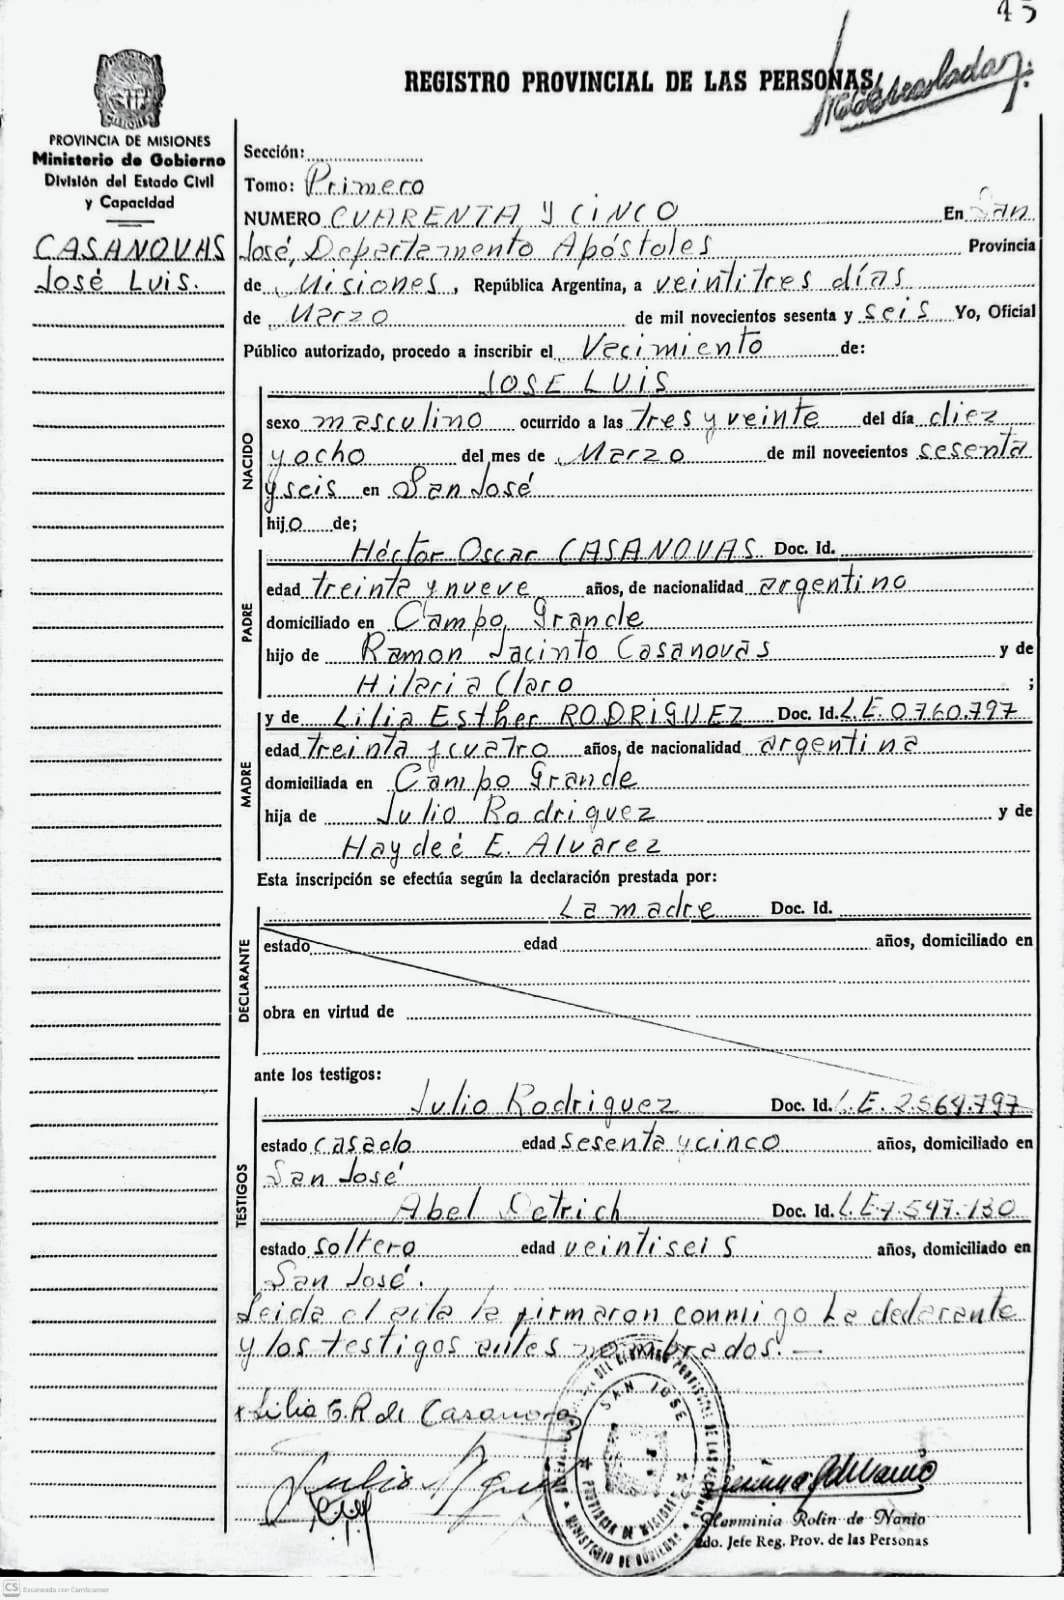 45
REGISTRO PROVINCIAL DE LAS PERSONAS
PROVINCIA DE MISIONES
Ministerio de Gobierno
División del Estado Civil
y Capacidad
CASANOVAS
José Luis.
Sección:
Tomo: Primero
NUMERO CUARENTA Y CINCO En San
José, Departamento Apóstoles Provincia
de Misiones, República Argentina, a veintitres días
de Marzo de mil novecientos sesenta y seis Yo, Oficial
Público autorizado, procedo a inscribir el Nacimiento de:
JOSE LUIS
NACIDO
sexo masculino ocurrido a las tres y veinte del día diez
y ocho del mes de Marzo de mil novecientos sesenta
y seis en San José
hijo de;
PADRE
Héctor Oscar CASANOVAS Doc. Id.
edad treinta y nueve años, de nacionalidad argentino
domiciliado en Campo Grande
hijo de Ramon Jacinto Casanovas y de
Hilaria Claro ;
MADRE
y de Lilia Esther RODRIGUEZ Doc. Id. L.E. 0.760.797
edad treinta y cuatro años, de nacionalidad argentina
domiciliada en Campo Grande
hija de Julio Rodriguez y de
Haydeé E. Alvarez
Esta inscripción se efectúa según la declaración prestada por:
DECLARANTE
La madre Doc. Id.
estado edad años, domiciliado en
obra en virtud de
ante los testigos:
TESTIGOS
Julio Rodriguez Doc. Id. L.E. 2.564.797
estado casado edad sesenta y cinco años, domiciliado en
San José
Abel Detrich Doc. Id. L.E 7.547.130
estado soltero edad veintiseis años, domiciliado en
San José.
Leida el acta la firmaron conmigo la declarante
y los testigos antes nombrados.—
x Lilia E. R de Casanovas
Julio
SAN JOSE
PROVINCIA DE MISIONES
MINISTERIO DE GOBIERNO
Herminia Rolin de Nanio
2do. Jefe Reg. Prov. de las Personas
CS Escaneado con CamScanner